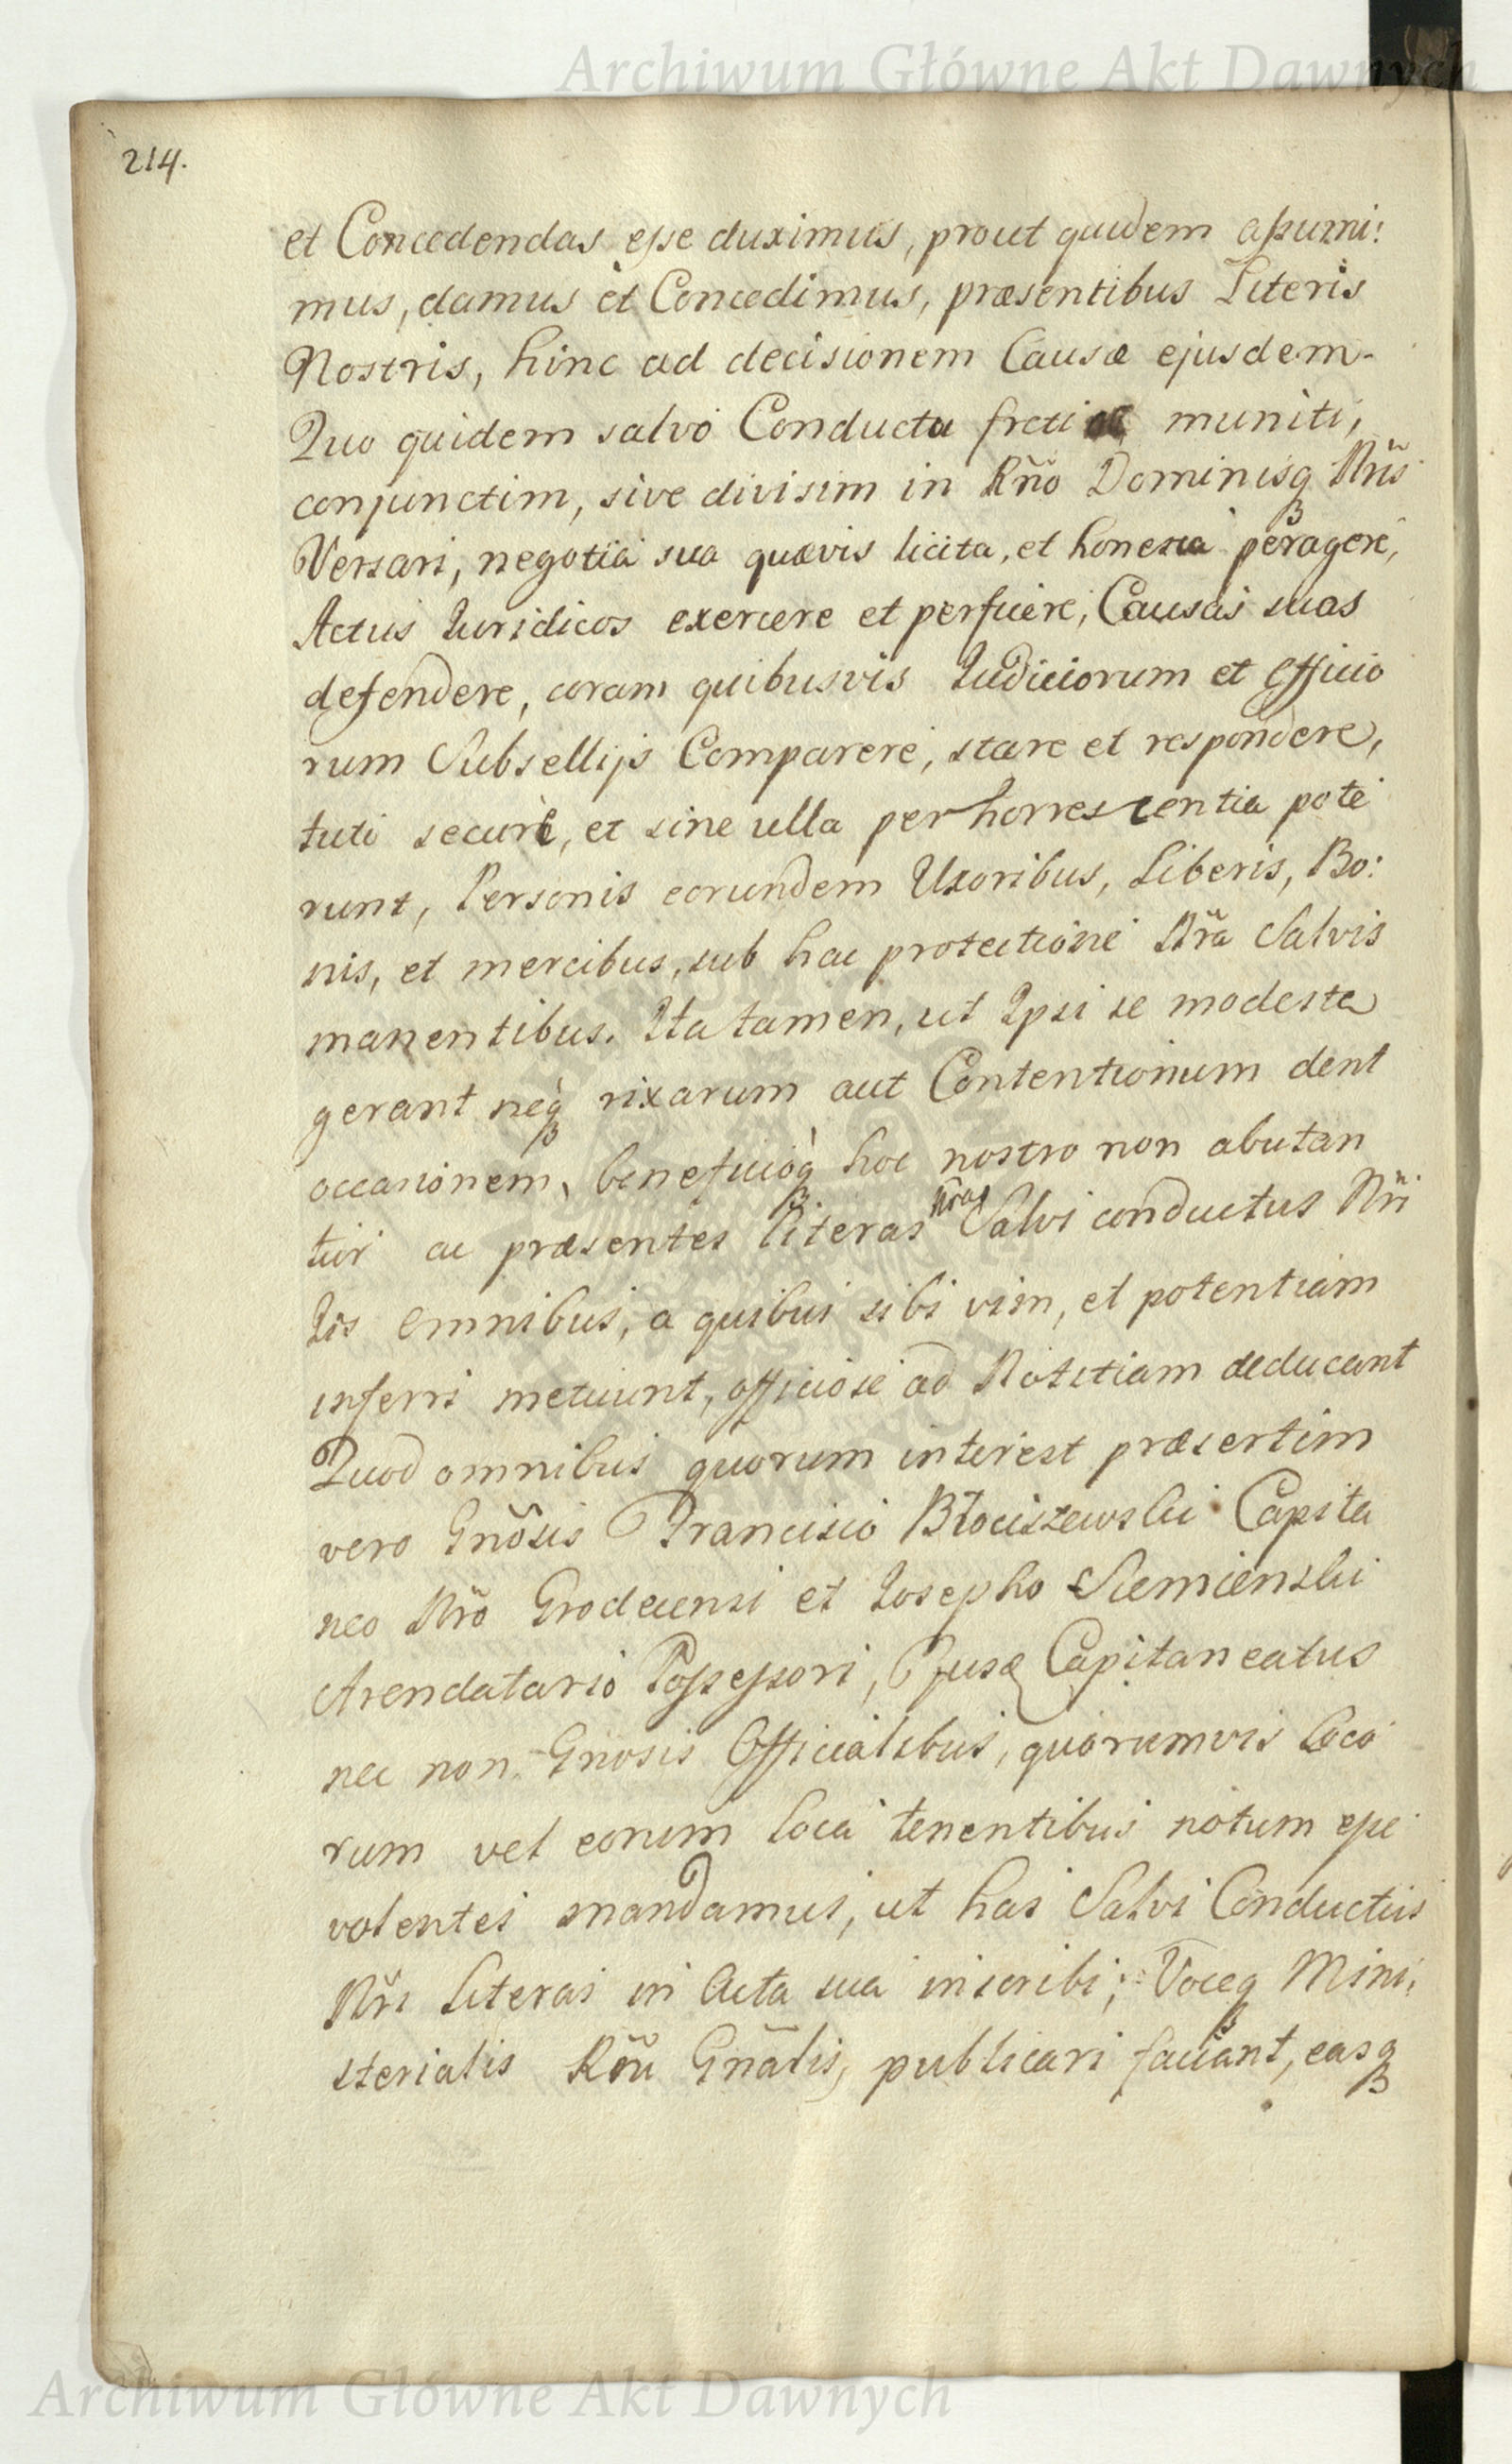 Archiwum Główne Akt Dawnych
214.
et Concedendas esse duximus, prout quidem assumi:
mus, damus et Concedimus, præsentibus Literis
Nostris, hinc ad decisionem Causæ ejusdem.
Quo quidem salvo Conductu freti ac muniti,
conjunctim, sive divisim in Rño Dominisq Nñis
Versari, negotia sua quævis licita, et honesta peragere,
Actus Iuridicos exercere et perficere, Causas suas
defendere, coram quibusvis Iudiciorum et Officio
rum Subsellijs Comparere, stare et respondere,
tuti securè, et sine ulla perhorrescentia pote
runt, Personis eorundem Uxoribus, Liberis, Bo:
nis, et mercibus, sub hac protectione Nr̃a Salvis
manentibus. Ita tamen, ut Ipsi se modeste
gerant neq rixarum aut Contentionum dent
occasionem, beneficioq hoc nostro non abutan
tur ac præsentes literas nr̃as Salvi conductus Nr̃i
Iis omnibus, a quibus sibi vim, et potentiam
inferri metuunt, officiose ad Notitiam deducant
Quod omnibus quorum interest præsertim
vero Gnõsis Francisco Błociszewski Capita
neo Nr̃o Grodecensi et Iosepho Siemienski
Arendatario Possessori, Ejusq Capitaneatus
nec non Gnosis Officialibus, quorumvis loco
rum vel eorum loca tenentibus notum esse
volentes mandamus, ut has Salvi Conductus
Nr̃i Literas in Acta sua inscribi, Voceq Mini:
sterialis Rñi Gnãlis, publicari faciant, easq
Archiwum Główne Akt Dawnych